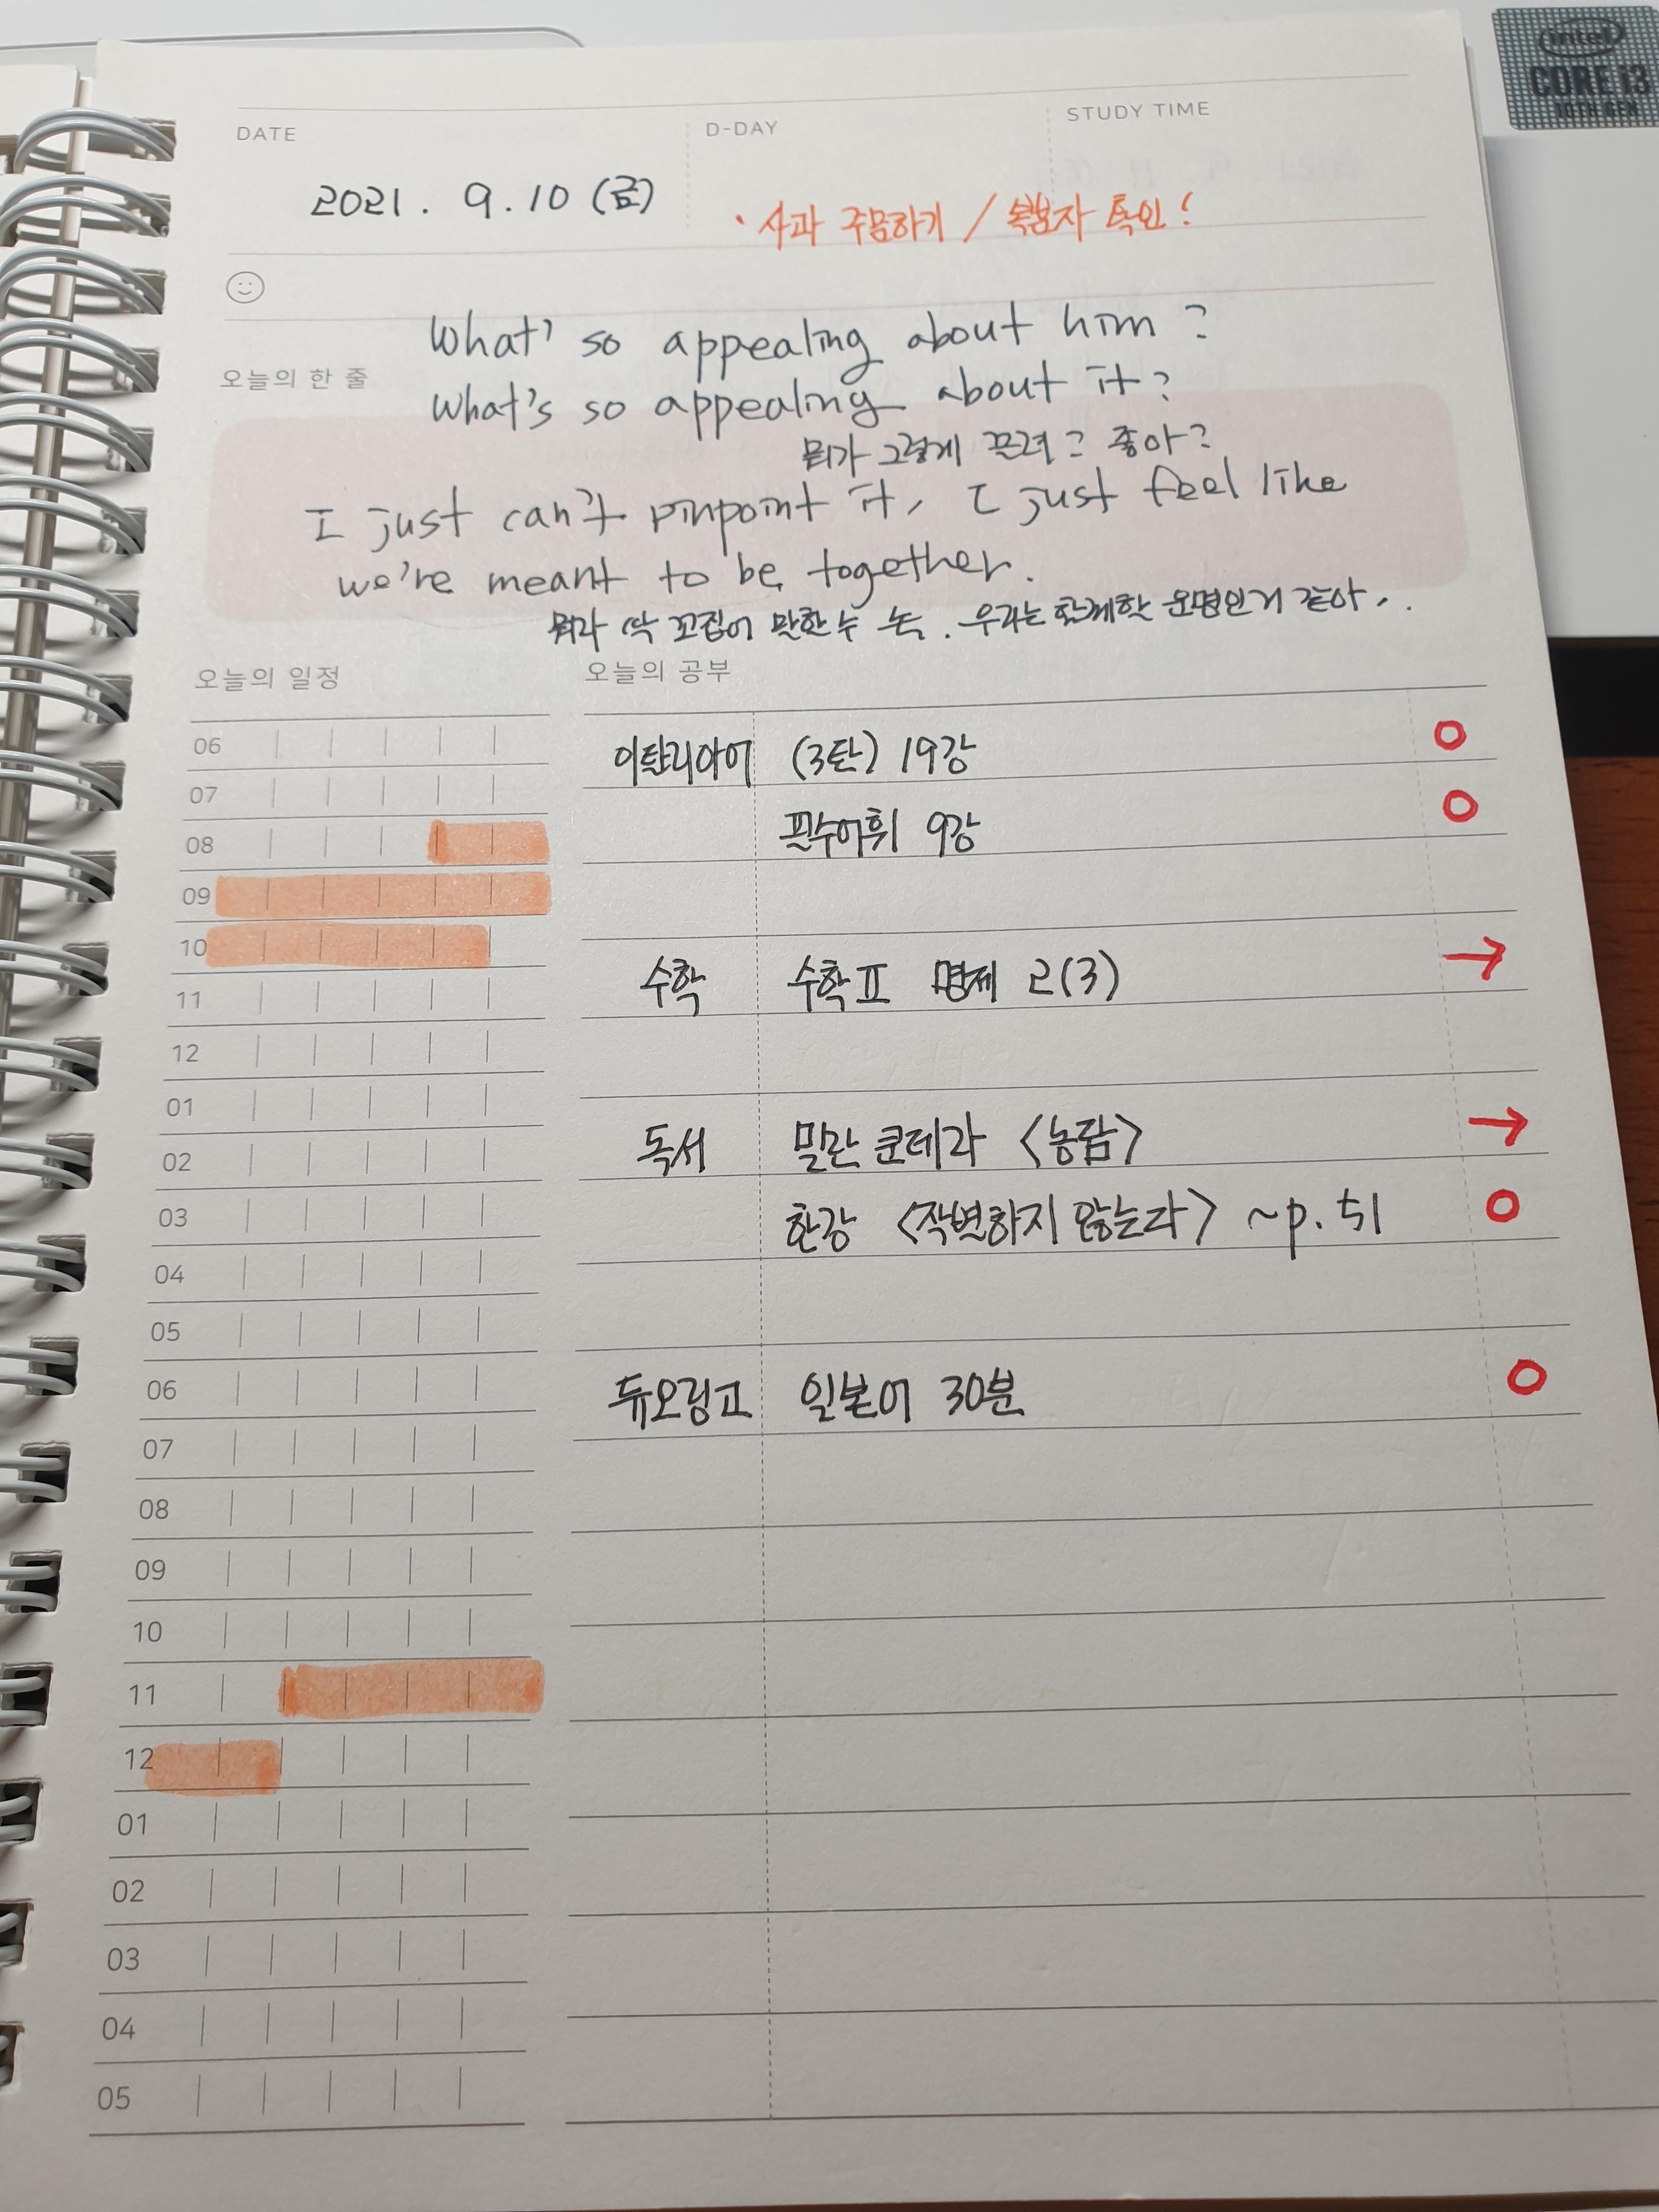 intel
CORE i3
10TH GEN
DATE
D-DAY
STUDY TIME
2021. 9. 10 (금)
· 사과 주문하기 / 확인!
What' so appealing about him?
오늘의 한 줄
What's so appealing about it?
뭐가 그렇게 끌려? 좋아?
I just can't pinpoint it, I just feel like
we're meant to be together.
뭐라 딱 꼬집어 말할 수 는 우리는 함께할 운명인거 같아.
오늘의 일정
오늘의 공부
06
이탈리아어 (3탄) 19강 O
07
필수어휘 9강 O
08
09
10
수학 수학Ⅱ 명제 2(3) →
11
12
01
독서 밀란 쿤데라 〈농담〉 →
02
03
한강 〈작별하지 않는다〉 ~p. 51 O
04
05
06
듀오링고 일본어 30분 O
07
08
09
10
11
12
01
02
03
04
05